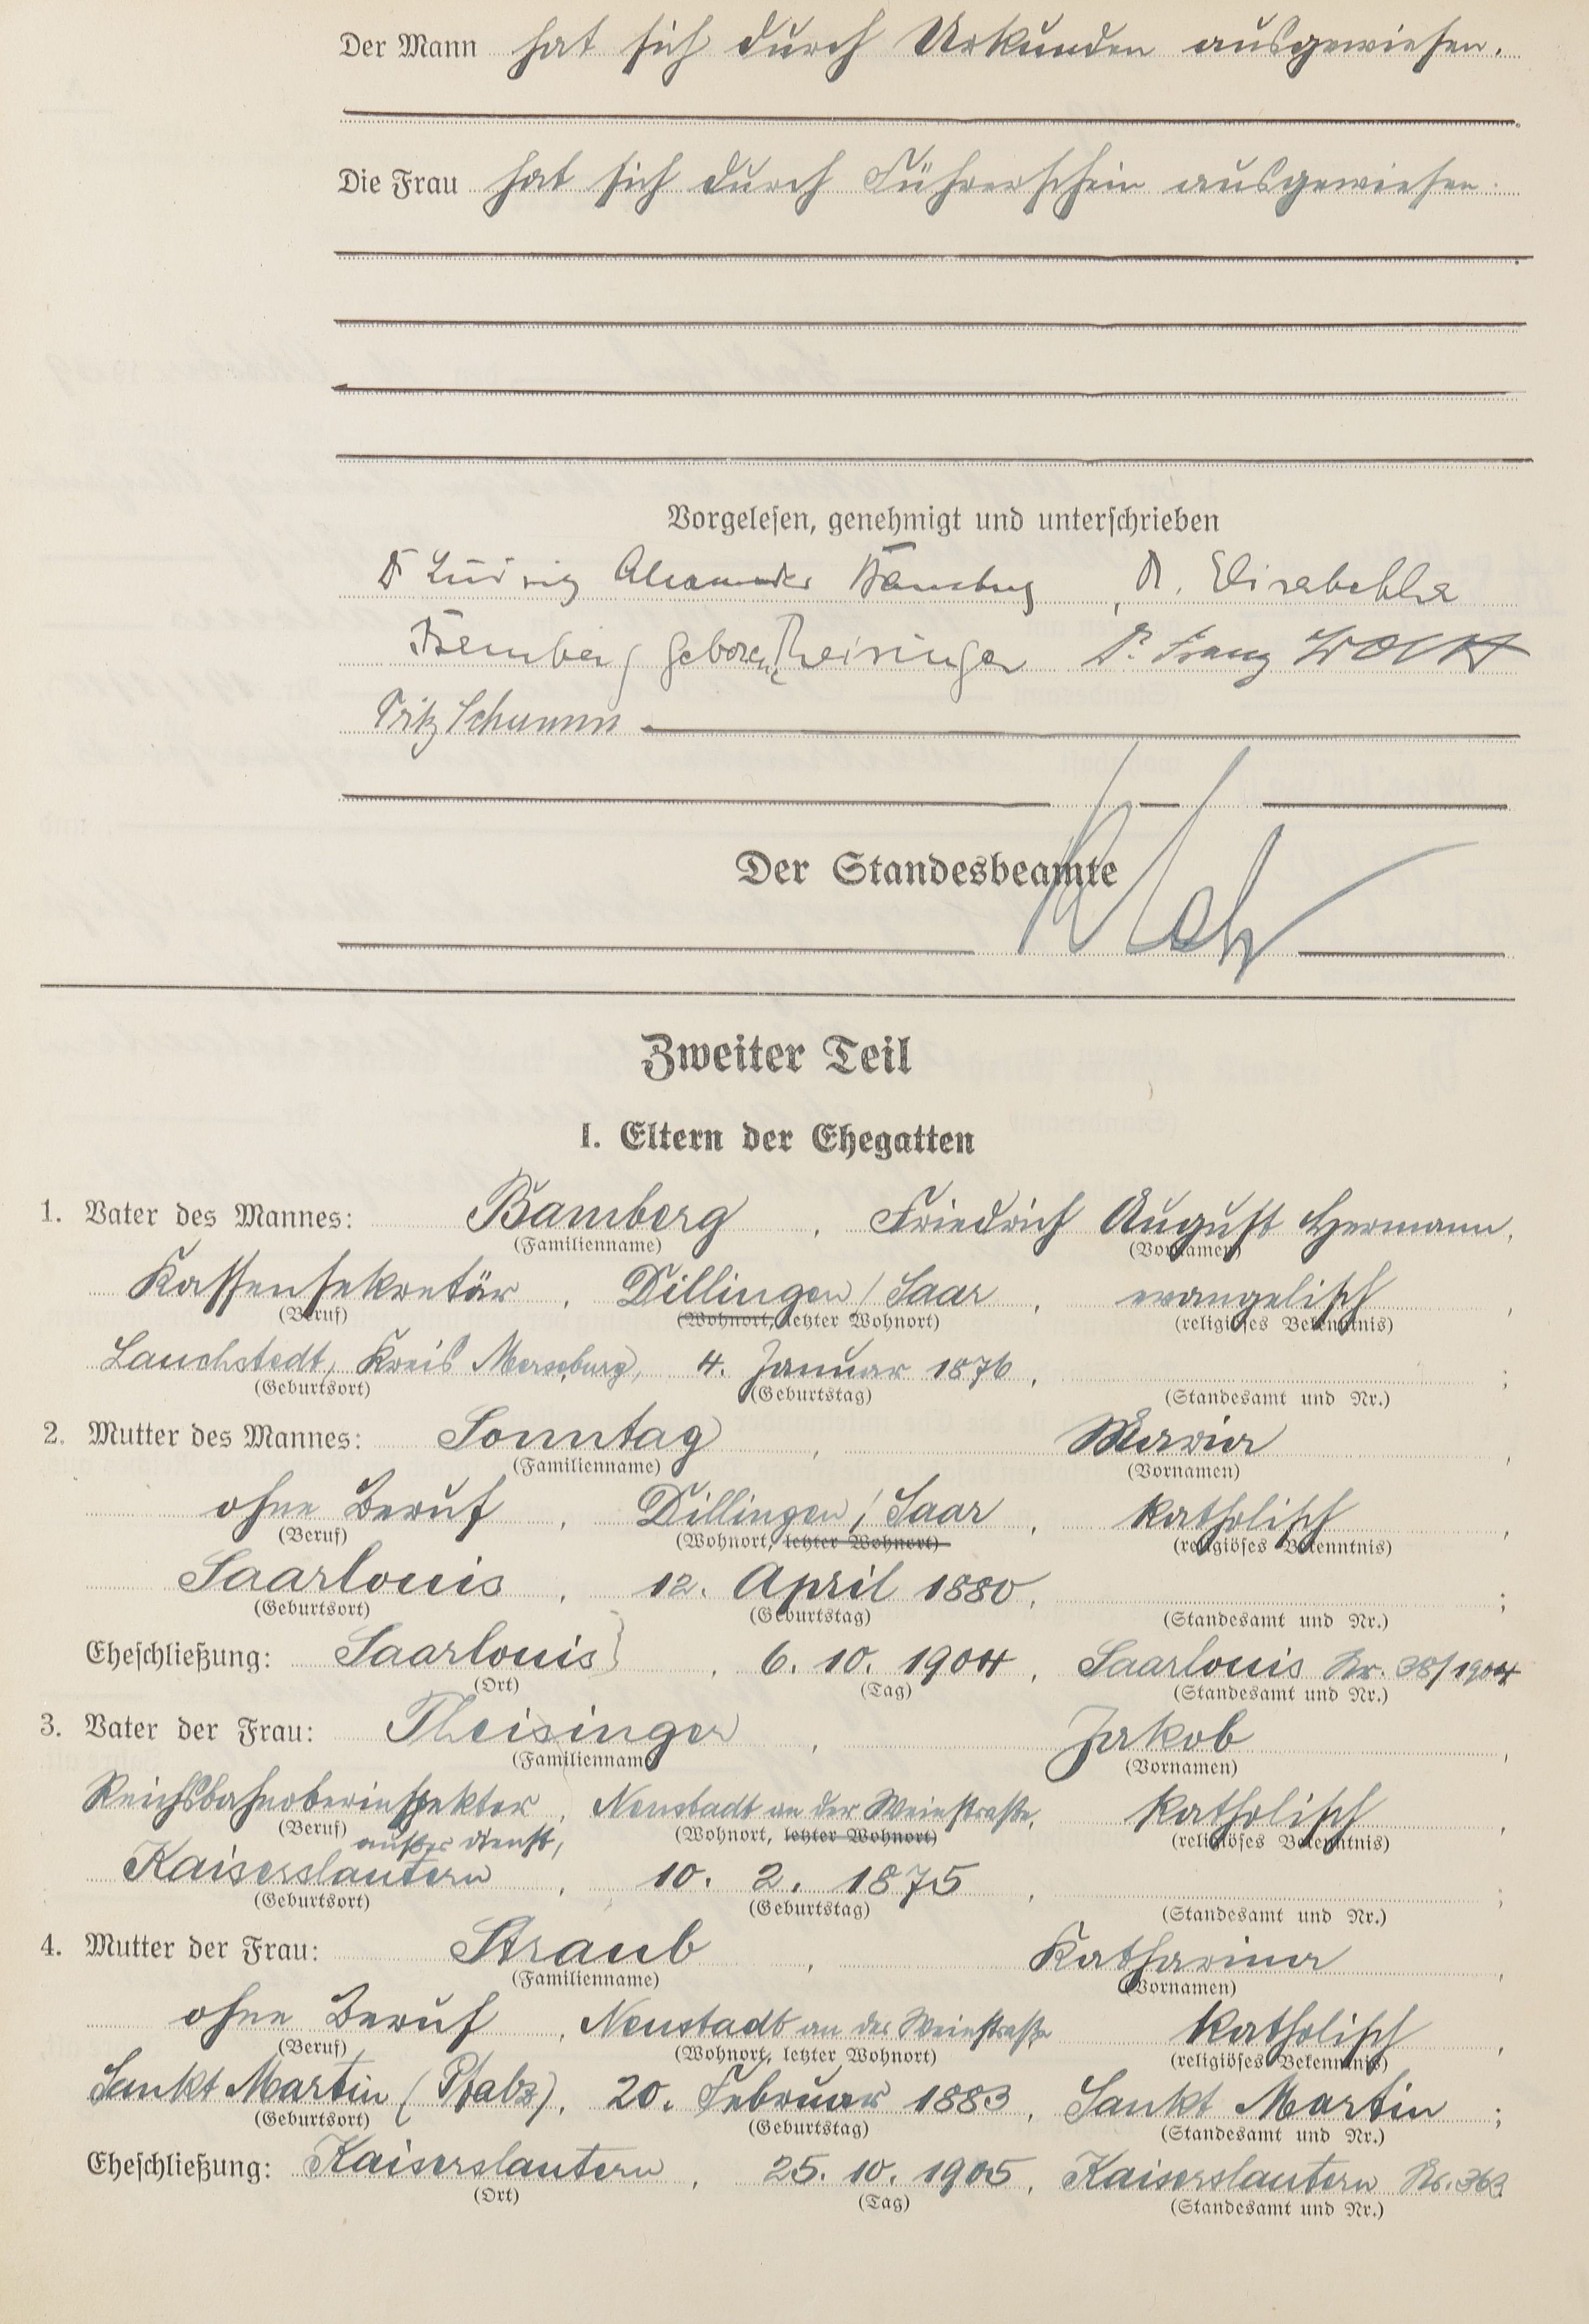 Der Mann hat sich durch Urkunden ausgewiesen.
Die Frau hat sich durch Führerschein ausgewiesen.
Vorgelesen, genehmigt und unterschrieben
Dr Ludwig Alexander Bamberg, Dr. Elisabetha
Bamberg geborene Theisinger Dr. Franz
Fritz Schumm
Der Standesbeamte
Zweiter Teil
I. Eltern der Ehegatten
1. Vater des Mannes: Bamberg, Friedrich August Hermann,
(Familienname) (Vornamen)
Kassensekretär, Dillingen / Saar, evangelisch,
(Beruf) (Wohnort, letzter Wohnort) (religiöses Bekenntnis)
Lauchstedt, Kreis Merseburg, 4. Januar 1876, ;
(Geburtsort) (Geburtstag) (Standesamt und Nr.)
2. Mutter des Mannes: Sonntag, Maria,
(Familienname) (Vornamen)
ohne Beruf, Dillingen / Saar, katholisch,
(Beruf) (Wohnort, letzter Wohnort) (religiöses Bekenntnis)
Saarlouis, 12. April 1880, ;
(Geburtsort) (Geburtstag) (Standesamt und Nr.)
Eheschließung: Saarlouis, 6. 10. 1904, Saarlouis Nr. 38/1904
(Ort) (Tag) (Standesamt und Nr.)
3. Vater der Frau: Theisinger, Jakob,
(Familienname) (Vornamen)
Reichsbahnoberinspektor, Neustadt an der Weinstraße, katholisch,
(Beruf) außer Dienst, (Wohnort, letzter Wohnort) (religiöses Bekenntnis)
Kaiserslautern, 10. 2. 1875, ;
(Geburtsort) (Geburtstag) (Standesamt und Nr.)
4. Mutter der Frau: Straub, Katharina,
(Familienname) (Vornamen)
ohne Beruf, Neustadt an der Weinstraße katholisch,
(Beruf) (Wohnort, letzter Wohnort) (religiöses Bekenntnis)
Sankt Martin (Pfalz), 20. Februar 1883, Sankt Martin ;
(Geburtsort) (Geburtstag) (Standesamt und Nr.)
Eheschließung: Kaiserslautern, 25. 10. 1905, Kaiserslautern Nr. 363
(Ort) (Tag) (Standesamt und Nr.)